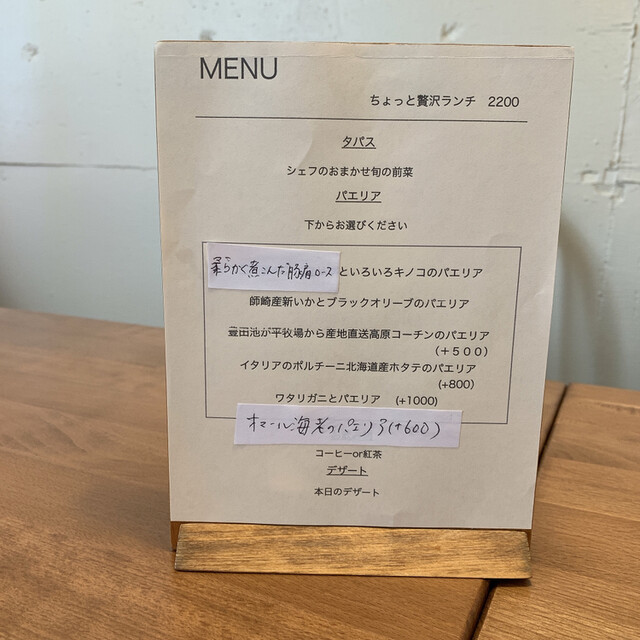 MENU
ちょっと贅沢ランチ 2200
タパス
シェフのおまかせ旬の前菜
パエリア
下からお選びください
柔らかく煮こんだ豚肩ロースといろいろキノコのパエリア
師崎産新いかとブラックオリーブのパエリア
豊田池が平牧場から産地直送高原コーチンのパエリア
(+500)
イタリアのポルチーニ北海道産ホタテのパエリア
(+800)
ワタリガニとパエリア (+1000)
オマール海老のパエリア(+600)
コーヒーor紅茶
デザート
本日のデザート